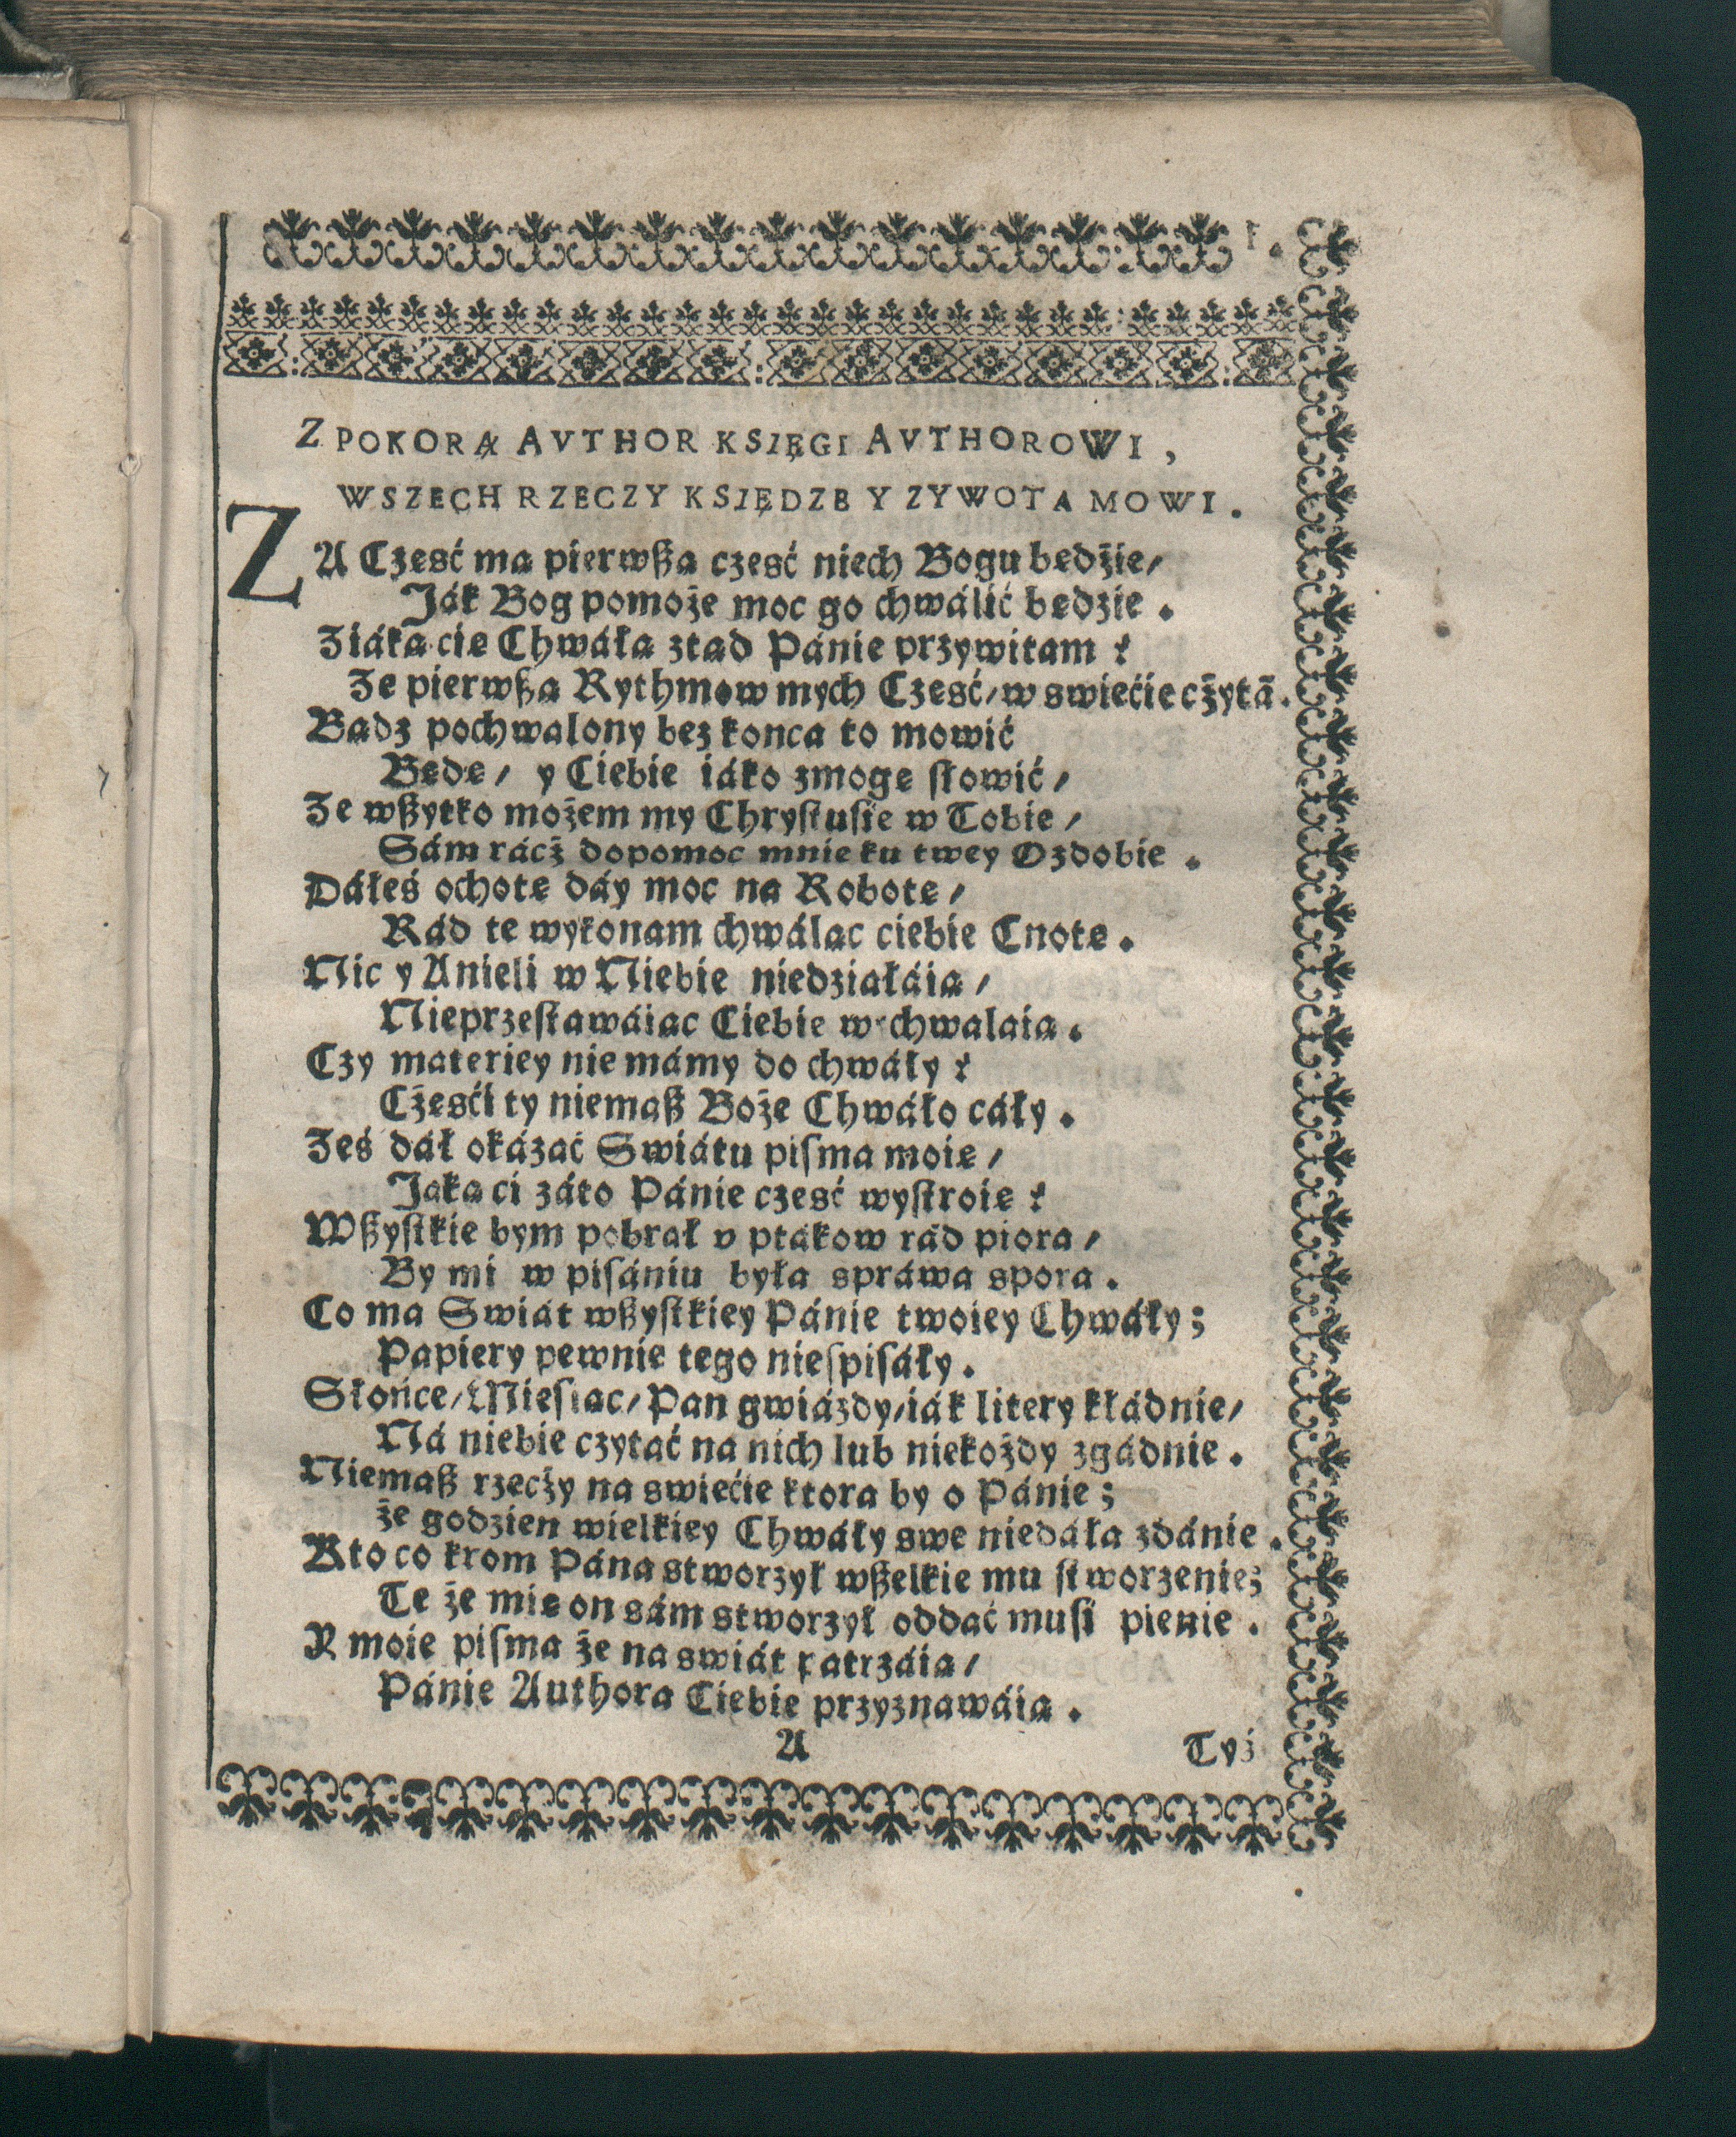 1.
Z POKORĄ AVTHOR KSIĘGI AVTHOROWI,
WSZECH RZECZY KSIĘDZE Y ZYWOTA MOWI.
ZA Część ma pierwßa cześć niech Bogu będźie/
Ják Bog pomoże moc go chwálić będzie.
Z iáką cię Chwáłą ztąd Pánie przywitam?
Ze pierwßą Rythmow mych Część/ w swiećie cżytã.
Bądz pochwalony bez konca to mowić
Będę/ y Ciebie iáko zmogę słowić/
Ze wßytko możem my Chrystusie w Tobie/
Sám rácż dopomoc mnie ku twey Ozdobie.
Dáłeś ochotę dáy moc na Robotę/
Rád tę wykonam chwáląc ciebie Cnotę.
Nic y Anieli w Niebie niedziałáią/
Nieprzestawáiąc Ciebie wychwalaią.
Czy materiey nie mámy do chwáły?
Cżęśći ty niemaß Boże Chwáło cáły.
Ześ dáł okázać Swiátu pisma moie/
Jaką ci záto Pánie cześć wystroię?
Wßystkie bym pobrał v ptakow rád piora/
By mi w pisániu była spráwa spora.
Co ma Swiát wßystkiey Pánie twoiey Chwáły;
Papiery pewnie tego niespisáły.
Słońce/ Miesiąc/ Pan gwiázdy/ iák litery kłádnie/
Ná niebie czytać na nich lub niekożdy zgádnie.
Niemaß rzecży na swiećie ktora by o Pánie;
że godzien wielkiey Chwáły swe niedáła zdánie.
Kto co krom Pána stworzył wßelkie mu stworzenie;
Te że mię on sám stworzył oddać musi pienie.
Y moie pisma że na swiát patrzáią/
Pánie Authora Ciebie przyznawáią.
A
Tyż